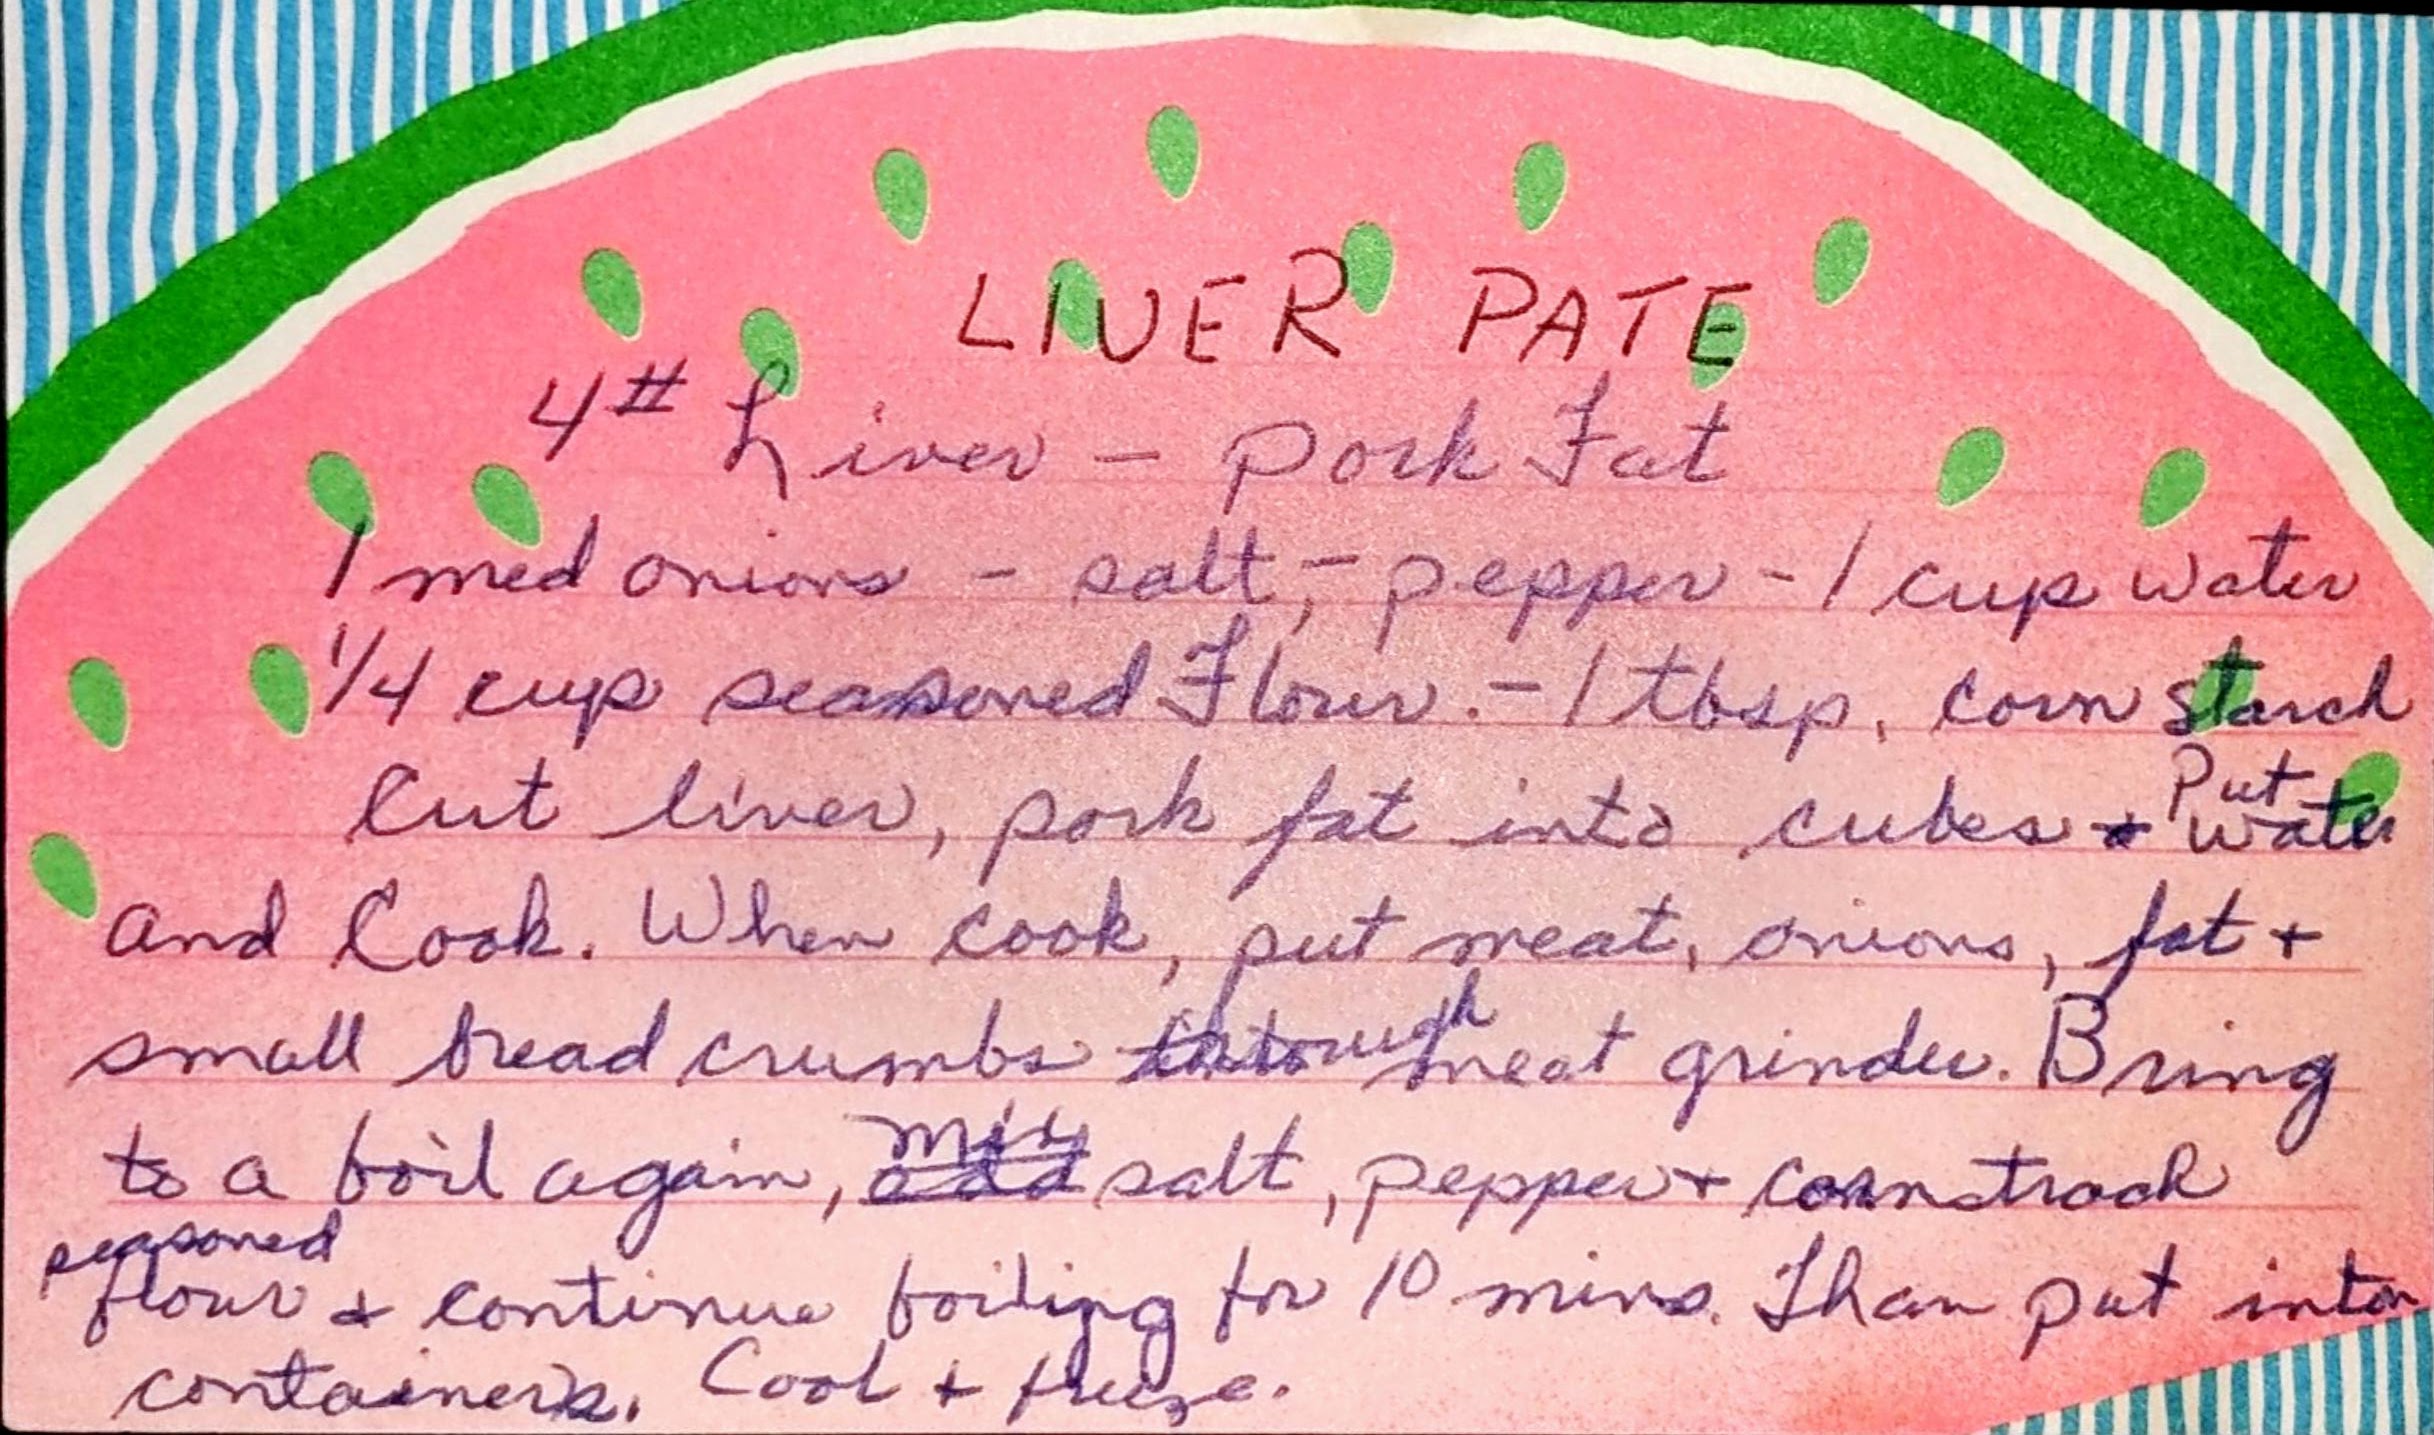 LIVER PATE
4# Liver - Pork Fat
1 med onions - salt, - pepper - 1 cup water
1/4 cup seasoned Flour. - 1 tbsp. corn starch
Cut liver, pork fat into cubes & Put water
and Cook. When cook, put meat, onions, fat +
small bread crumbs through meat grinder. Bring
to a boil again, mix salt, pepper + cornstrach
seasoned
flour & continue boiling for 10 mins. Than put into
containers. Cool + freeze.